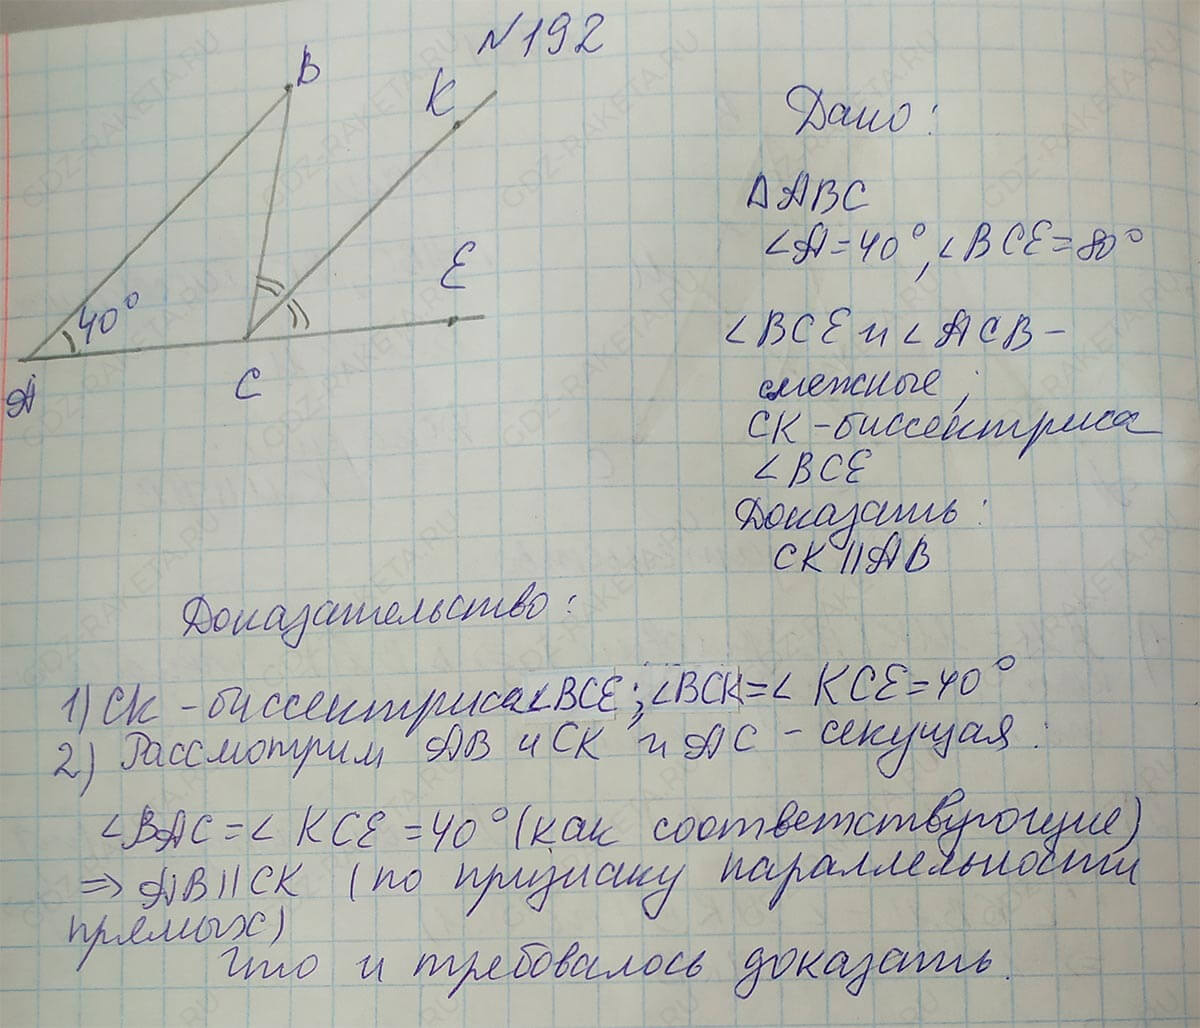 №192
B
K
E
40°
A
C
Дано:
ΔABC
∠A=40°, ∠BCE=80°
∠BCE и ∠ACB –
смежные;
CK – биссектриса
∠BCE
Доказать:
CK || AB
Доказательство:
1) CK – биссектриса ∠BCE; ∠BCK=∠KCE=40°
2) Рассмотрим AB и CK и AC – секущая:
∠BAC=∠KCE=40° (как соответствующие)
⇒ AB || CK (по признаку параллельности
прямых)
Что и требовалось доказать.
GDZ-RAKETA.RU